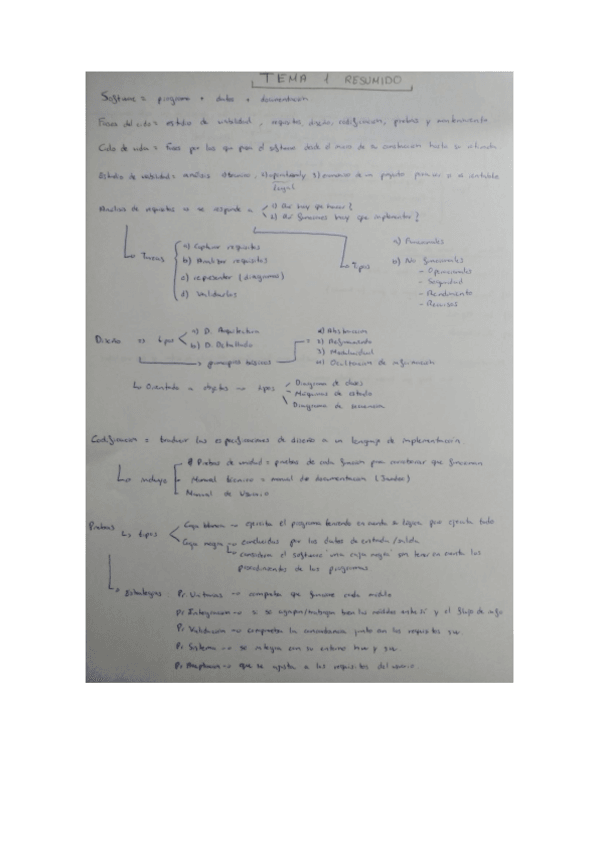 TEMA 1 RESUMIDO
Software = programa + datos + documentación
Fases del ciclo = estudio de viabilidad, requisitos, diseño, codificación, pruebas y mantenimiento
Ciclo de vida = fases por las que pasa el software desde el inicio de su construcción hasta su retirada.
Estudio de viabilidad = análisis 3) económico de un proyecto para ver si es rentable
legal
Análisis de requisitos => se responde a 1) Qué hay que hacer?
2) Qué funciones hay que implementar?
Tareas
a) Capturar requisitos
b) Analizar requisitos
c) representar (diagramas)
d) Validarlos
Tipos
a) Funcionales
b) No funcionales
- Operacionales
- Seguridad
- Rendimiento
- Recursos
Diseño => tipos
a) D. Arquitectura
b) D. Detallado
principios básicos
Abstracción
2) Refinamiento
3) Modularidad
Ocultación de información
Orientado a objetos -> tipos
Diagrama de clases
Máquinas de estado
Diagrama de secuencia
Codificación = traducir las especificaciones de diseño a un lenguaje de implementación
incluye
Pruebas de unidad = pruebas de cada función para que funcionan
Manual técnico = manual de documentación
Manual de Usuario
Pruebas
tipos
Caja blanca -> ejecuta el programa teniendo en cuenta su lógica, que ejecuta todo
Caja negra -> conducidas por los datos de entrada/salida
considera el software "una caja negra" sin tener en cuenta los
procedimientos de los programas
Estrategias:
Pr Unitarias -> comprueba que funcione cada módulo
Pr Integración -> si se bien los módulos entre sí y el flujo de info
Pr Validación -> comprueban la concordancia junto con los requisitos
Pr Sistema -> se integra con su entorno hw y sw.
Pr Aceptación -> que se ajusta a los requisitos del usuario.